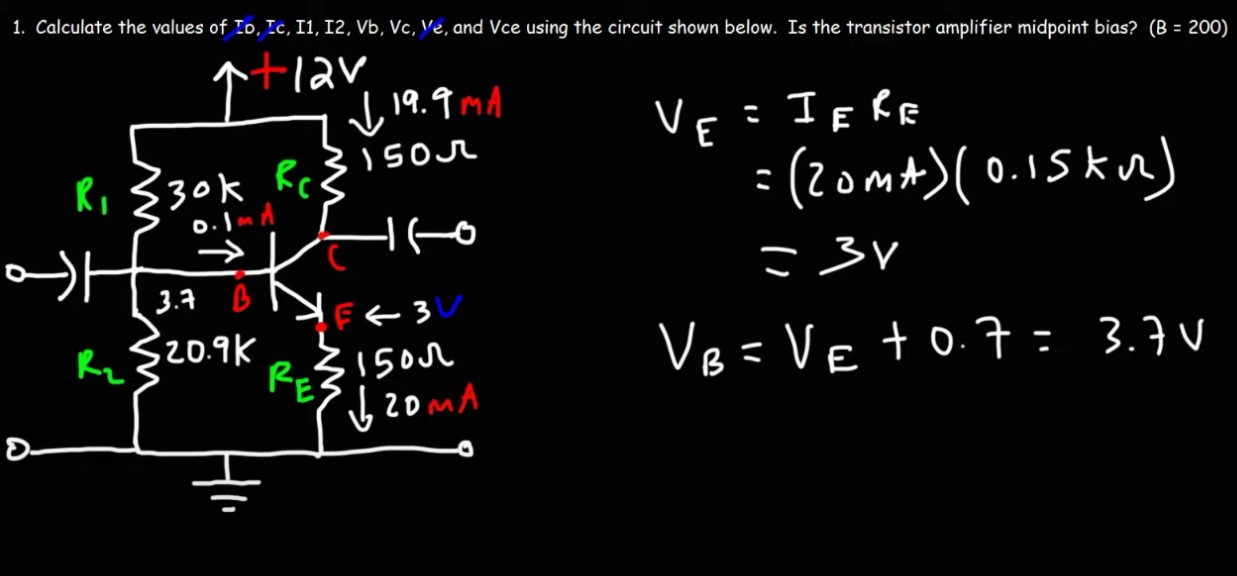 1. Calculate the values of Ib, Ic, I1, I2, Vb, Vc, Ve, and Vce using the circuit shown below. Is the transistor amplifier midpoint bias? (B = 200)
+12V
↓ 19.9 mA
150Ω
R1
30k
RC
0.1mA
→
C
3.7
B
E ← 3V
R2
20.9K
RE
150Ω
↓ 20mA
VE = IE RE
= (20mA)(0.15kΩ)
= 3V
VB = VE + 0.7 = 3.7V